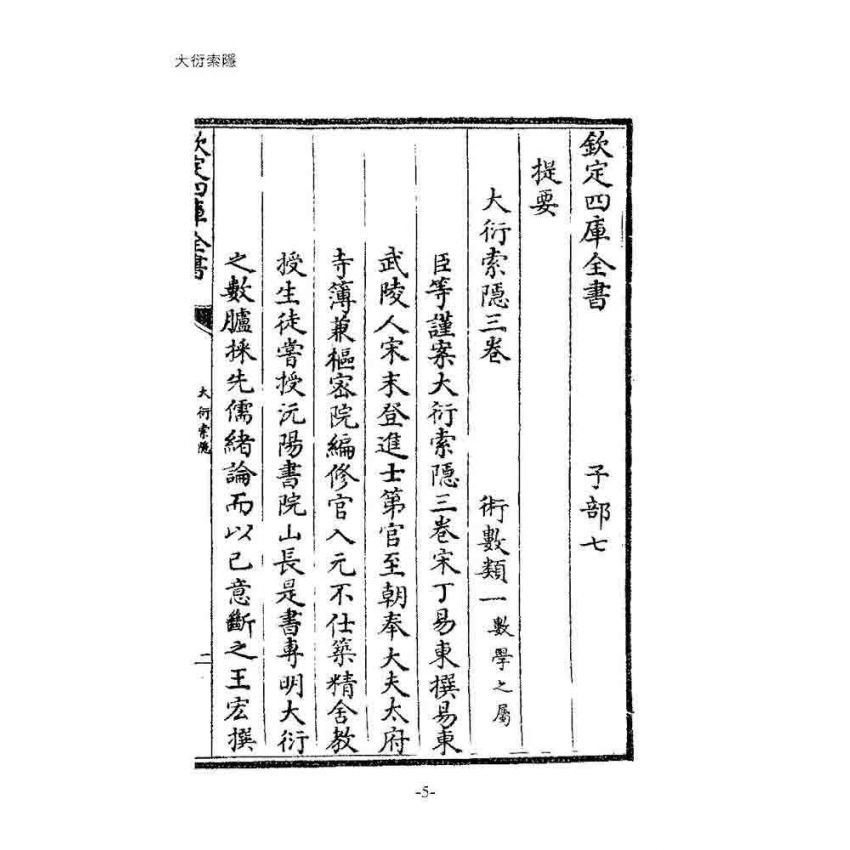 大衍索隱
欽定四庫全書　子部七
提要
大衍索隱三卷　術數類一數學之屬
臣等謹案大衍索隱三卷宋丁易東撰易東
武陵人宋末登進士第官至朝奉大夫太府
寺簿兼樞密院編修官入元不仕築精舍教
授生徒嘗授沅陽書院山長是書專明大衍
之數臚採先儒緒論而以己意斷之王宏撰
欽定四庫全書
大衍索隱
二
-5-